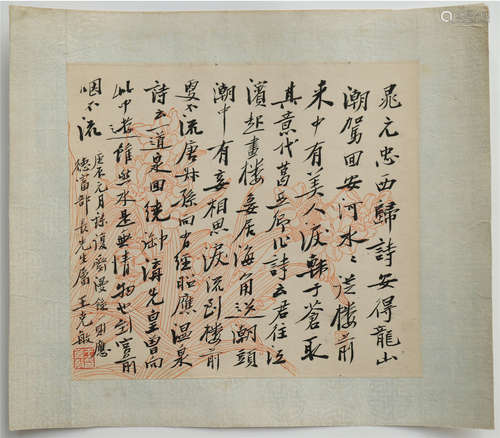 晁元忠西歸詩安得龍山
潮駕回安河水々從樓前
来中有美人淚韓子蒼取
其意代葛亞卿作詩云君住江
濱起畫樓妾居海角送潮頭
潮中有妾相思淚流到樓前
更不流唐叔孫向有經昭應温泉
詩云一道泉回繞御溝先皇曾向
此中遊雖然水是無情物也到宮前
咽不流
庚辰元月錄復齋漫錄即應
德富部長先生属 王克敏